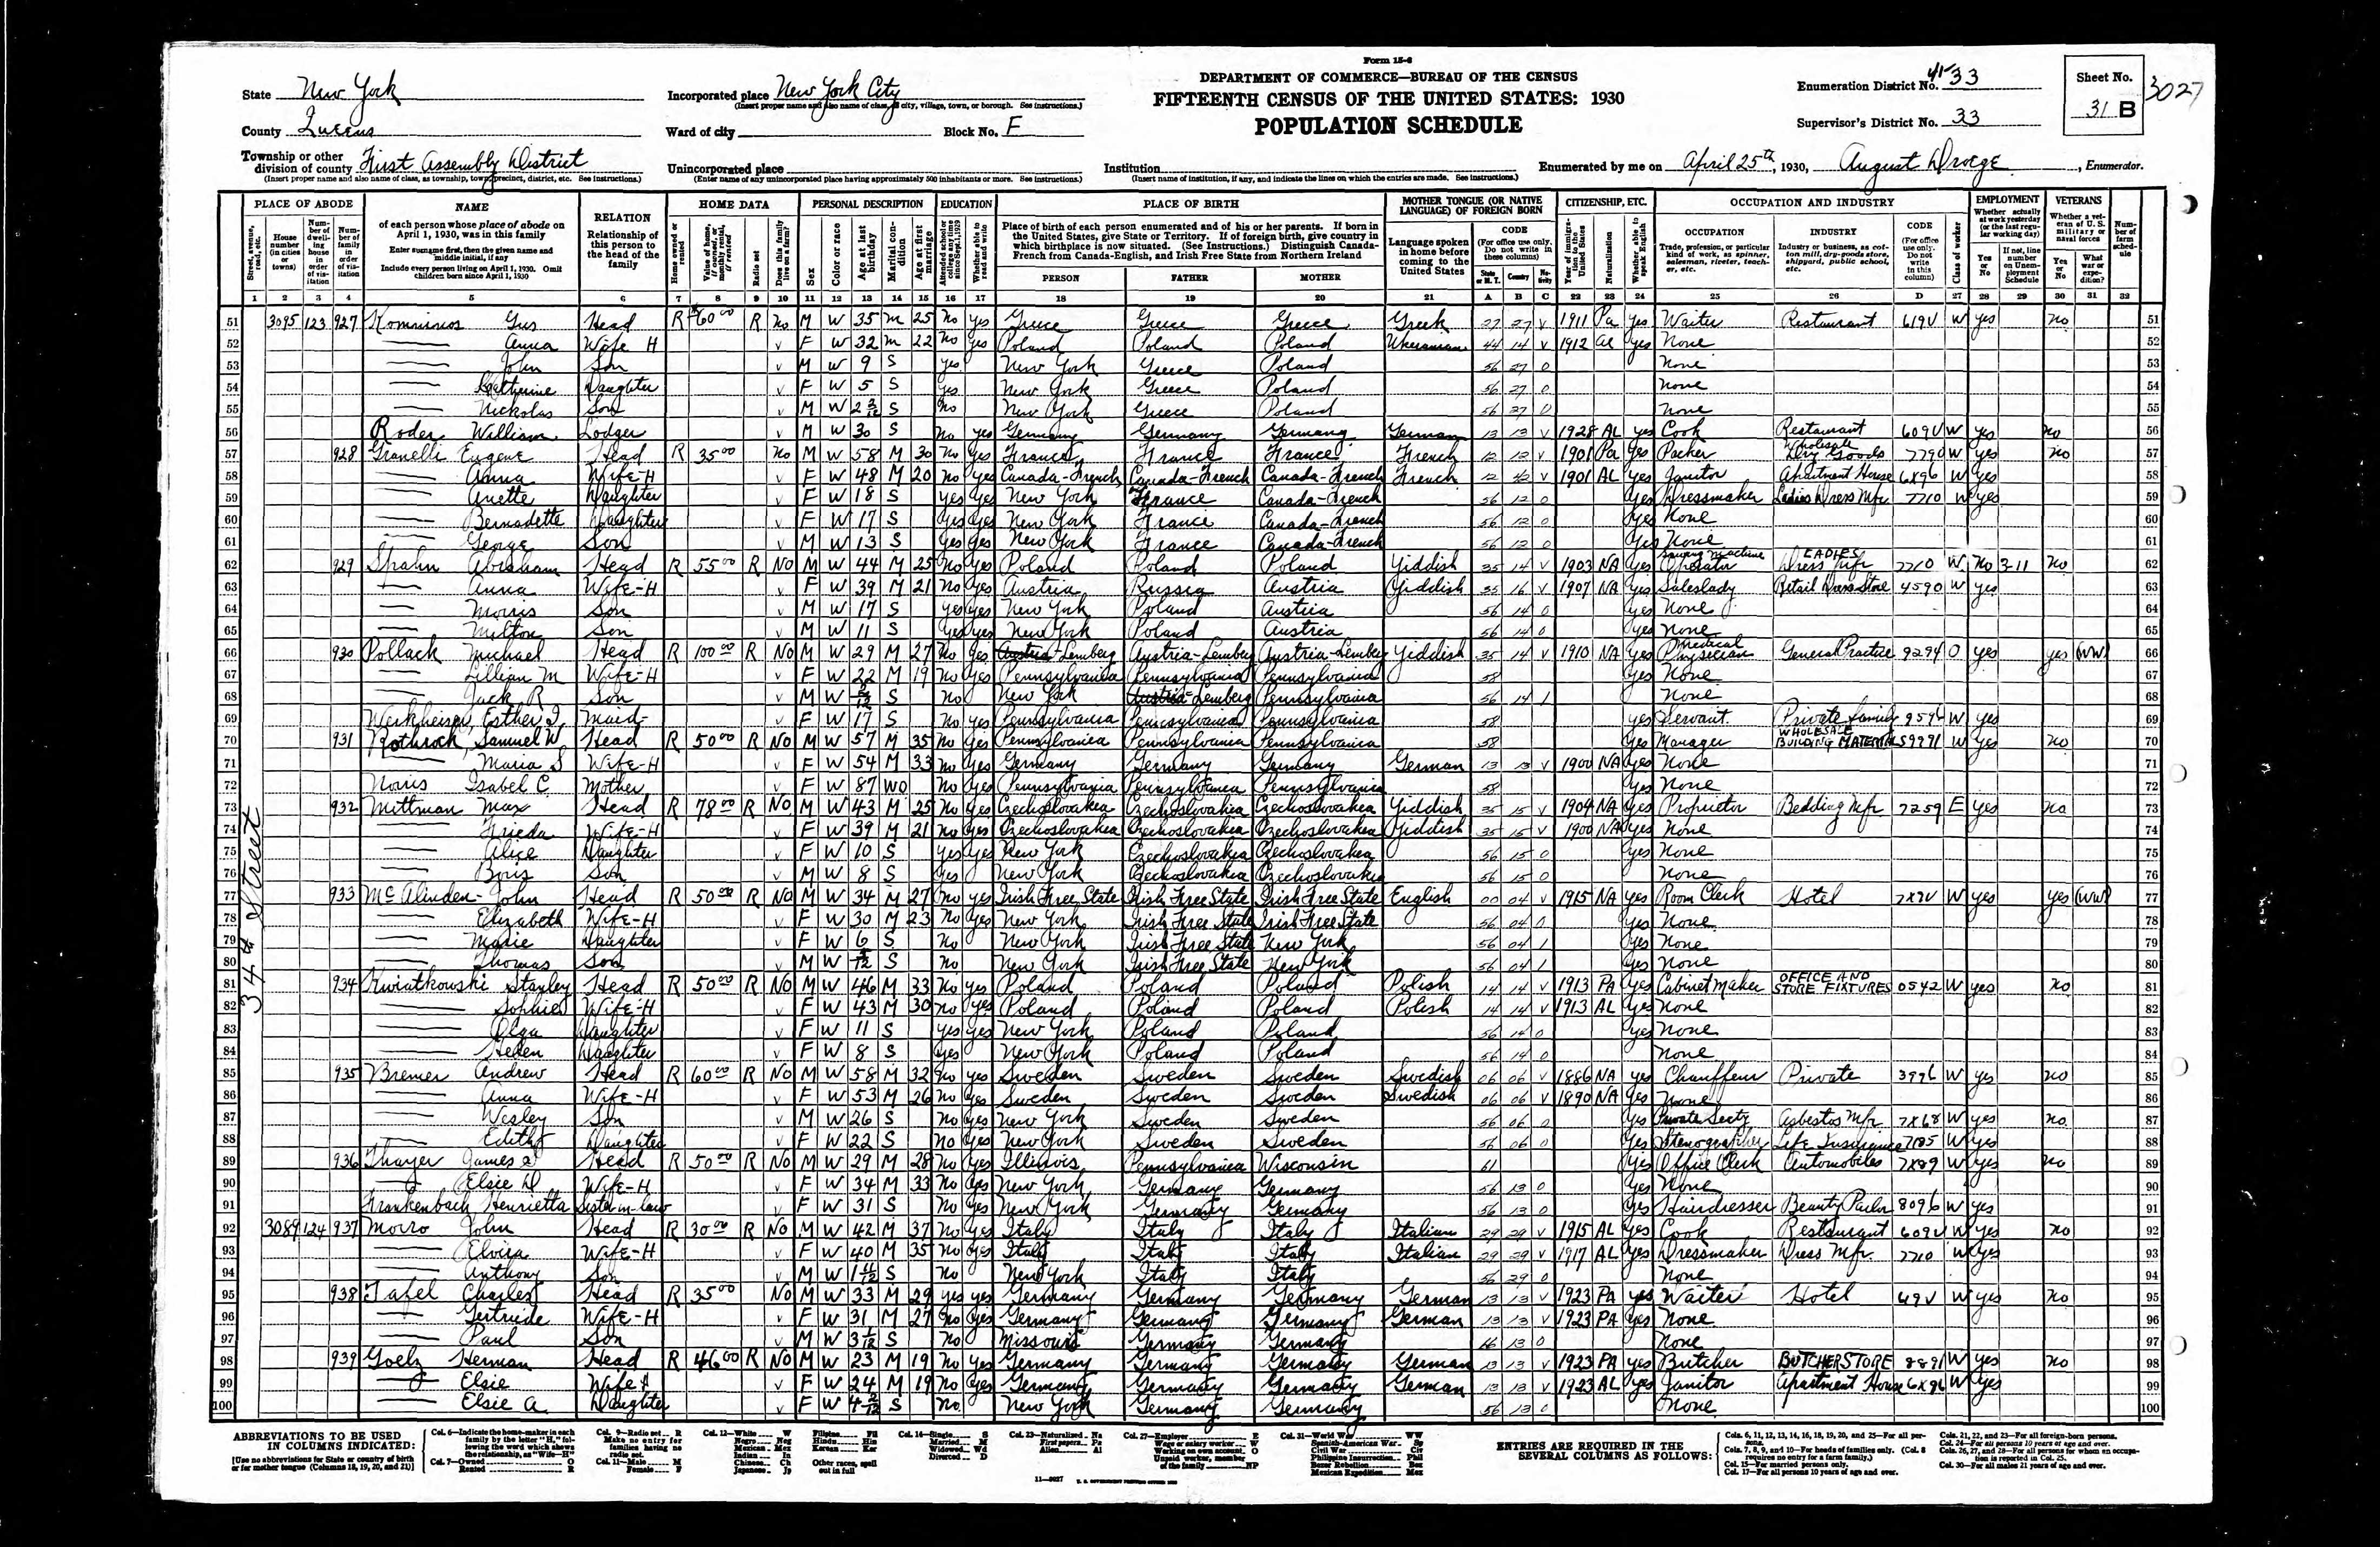 Form 15-6
DEPARTMENT OF COMMERCE—BUREAU OF THE CENSUS
FIFTEENTH CENSUS OF THE UNITED STATES: 1930
POPULATION SCHEDULE
State New York
County Queens
Township or other division of county First Assembly District
(Insert proper name and also name of class, as township, town, precinct, district, etc. See instructions.)
Incorporated place New York City
(Insert proper name and also name of class, as city, village, town, or borough. See instructions.)
Ward of city Block No. F
Unincorporated place
(Enter name of any unincorporated place having approximately 500 inhabitants or more. See instructions.)
Institution
(Insert name of institution, if any, and indicate the lines on which the entries are made. See instructions.)
Enumeration District No. 41-33
Supervisor's District No. 33
Sheet No. 31 B
3027
Enumerated by me on April 25th, 1930, August Droege, Enumerator.
PLACE OF ABODE NAME RELATION HOME DATA PERSONAL DESCRIPTION EDUCATION PLACE OF BIRTH MOTHER TONGUE (OR NATIVE LANGUAGE) OF FOREIGN BORN CITIZENSHIP, ETC. OCCUPATION AND INDUSTRY EMPLOYMENT VETERANS
PERSON FATHER MOTHER
34th Street
51 3095 123 927 Komninos Gus Head R 60 00 R No M W 35 M 25 No yes Greece Greece Greece Greek 27 27 V 1911 Pa yes Waiter Restaurant 619V W yes No 51
52 Anna Wife H V F W 32 M 22 No yes Poland Poland Poland 44 14 V 1912 al yes None 52
53 John Son V M W 9 S yes New York Greece Poland 56 27 0 None 53
54 Katherine Daughter V F W 5 S yes New York Greece Poland 56 27 0 None 54
55 Nickolas Son V M W 2 3/12 S No New York Greece Poland 56 27 0 None 55
56 Roder William Lodger V M W 30 S No yes Germany Germany Germany German 13 13 V 1928 AL yes Cook Restaurant 609V W yes No 56
57 928 Granelli Eugene Head R 35 00 No M W 58 M 30 No yes France France France French 12 12 V 1901 Pa yes Packer Wholesale Dry Goods 7790 W yes No 57
58 Anna Wife-H V F W 48 M 20 No yes Canada-French Canada-French Canada-French French 12 42 V 1901 AL yes Janitor Apartment House 6X96 W yes 58
59 Anette Daughter V F W 18 S yes yes New York France Canada-French 56 12 0 yes Dressmaker Ladies Dress Mfr 7710 W yes 59
60 Bernadette Daughter V F W 17 S yes yes New York France Canada-French 56 12 0 yes None 60
61 George Son V M W 13 S yes yes New York France Canada-French 56 12 0 yes None 61
62 929 Spahn Abraham Head R 55 00 R No M W 44 M 25 No yes Poland Poland Poland Yiddish 35 14 V 1903 NA yes Sewing Machine Operator LADIES Dress Mfr 7710 W No 3-11 No 62
63 Anna Wife-H V F W 39 M 21 No yes Austria Russia Austria Yiddish 35 16 V 1907 NA yes Saleslady Retail Dress Store 4590 W yes 63
64 Morris Son V M W 17 S yes yes New York Poland Austria 56 14 0 yes None 64
65 Milton Son V M W 11 S yes yes New York Poland Austria 56 14 0 yes None 65
66 930 Pollack Michael Head R 100 00 R No M W 29 M 27 No yes Austria-Lemberg Austria-Lemberg Austria-Lemberg Yiddish 35 14 V 1910 NA yes Medical Physician General Practice 9294 O yes yes WW 66
67 Lillian M Wife-H V F W 22 M 19 No yes Pennsylvania Pennsylvania Pennsylvania 58 yes None 67
68 Jack R Son V M W S No New York Austria-Lemberg Pennsylvania 56 14 1 None 68
69 Werkheiser, Esther I. Maid V F W 17 S No yes Pennsylvania Pennsylvania Pennsylvania 58 yes Servant Private family 9596 W yes 69
70 931 Rothrock, Samuel W Head R 50 00 R No M W 57 M 35 No yes Pennsylvania Pennsylvania Pennsylvania 58 yes Manager WHOLESALE BUILDING MATERIALS 9991 W yes No 70
71 Maria S Wife-H V F W 54 M 33 No yes Germany Germany Germany German 13 13 V 1900 NA yes None 71
72 Norris Isabel C Mother V F W 87 WD No yes Pennsylvania Pennsylvania Pennsylvania 58 yes None 72
73 932 Mittman Max Head R 78 00 R No M W 43 M 25 No yes Czechoslovakia Czechoslovakia Czechoslovakia Yiddish 35 15 V 1904 NA yes Proprietor Bedding Mfr 7259 E yes No 73
74 Frieda Wife-H V F W 39 M 21 No yes Czechoslovakia Czechoslovakia Czechoslovakia Yiddish 35 15 V 1900 NA yes None 74
75 Alice Daughter V F W 10 S yes yes New York Czechoslovakia Czechoslovakia 56 15 0 yes None 75
76 Boris Son V M W 8 S yes New York Czechoslovakia Czechoslovakia 56 15 0 None 76
77 933 McAlinden John Head R 50 00 R No M W 34 M 27 No yes Irish Free State Irish Free State Irish Free State English 00 04 V 1915 NA yes Room Clerk Hotel 7X7V W yes yes WW 77
78 Elizabeth Wife-H V F W 30 M 23 No yes New York Irish Free State Irish Free State 56 04 0 yes None 78
79 Marie Daughter V F W 6 S No New York Irish Free State New York 56 04 1 yes None 79
80 Thomas Son V M W S No New York Irish Free State New York 56 04 1 yes None 80
81 934 Kwiatkowski Stanley Head R 50 00 R No M W 46 M 33 No yes Poland Poland Poland Polish 14 14 V 1913 PA yes Cabinet Maker OFFICE AND STORE FIXTURES 0542 W yes No 81
82 Sophie Wife-H V F W 43 M 30 No yes Poland Poland Poland Polish 14 14 V 1913 AL yes None 82
83 Olga Daughter V F W 11 S yes yes New York Poland Poland 56 14 0 yes None 83
84 Helen Daughter V F W 8 S yes New York Poland Poland 56 14 0 None 84
85 935 Bremer Andrew Head R 60 00 R No M W 58 M 32 No yes Sweden Sweden Sweden Swedish 06 06 V 1886 NA yes Chauffeur Private 3996 W yes No 85
86 Anna Wife-H V F W 53 M 26 No yes Sweden Sweden Sweden Swedish 06 06 V 1890 NA yes None 86
87 Wesley Son V M W 26 S No yes New York Sweden Sweden 56 06 0 yes Private Secty Asbestos Mfr. 7X68 W yes No 87
88 Edith Daughter V F W 22 S No yes New York Sweden Sweden 56 06 0 yes Stenographer Life Insurance 7185 W yes 88
89 936 Thayer James Head R 50 00 R No M W 29 M 28 No yes Illinois Pennsylvania Wisconsin 61 yes Office Clerk Automobiles 7X89 W yes No 89
90 Elsie D Wife-H V F W 34 M 33 No yes New York Germany Germany 56 13 0 yes None 90
91 Frankenbach Henrietta Sister-in-law V F W 31 S No yes New York Germany Germany 56 13 0 yes Hairdresser Beauty Parlor 8096 W yes 91
92 3089 124 937 Morro John Head R 30 00 R No M W 42 M 37 No yes Italy Italy Italy Italian 29 29 V 1915 AL yes Cook Restaurant 609V W yes No 92
93 Elvira Wife-H V F W 40 M 35 No yes Italy Italy Italy Italian 29 29 V 1917 AL yes Dressmaker Dress Mfr. 7710 W yes 93
94 Anthony Son V M W 1 11/12 S No New York Italy Italy 56 29 0 None 94
95 938 Tafel Charles Head R 35 00 No M W 33 M 29 yes yes Germany Germany Germany German 13 13 V 1923 PA yes Waiter Hotel 69V W yes No 95
96 Gertrude Wife-H V F W 31 M 27 No yes Germany Germany Germany German 13 13 V 1923 PA yes None 96
97 Paul Son V M W 3 1/12 S No Missouri Germany Germany 66 13 0 None 97
98 939 Goelz Herman Head R 46 00 R No M W 23 M 19 No yes Germany Germany Germany German 13 13 V 1923 PA yes Butcher BUTCHER STORE 8891 W yes No 98
99 Elsie Wife H V F W 24 M 19 No yes Germany Germany Germany German 13 13 V 1923 AL yes Janitor Apartment House 6X96 W yes 99
100 Elsie A. Daughter V F W 4 2/12 S No New York Germany Germany 56 13 0 None 100
ABBREVIATIONS TO BE USED IN COLUMNS INDICATED:
[Use no abbreviations for State or country of birth or for mother tongue (Columns 18, 19, 20, and 21)]
ENTRIES ARE REQUIRED IN THE SEVERAL COLUMNS AS FOLLOWS:
11—9027